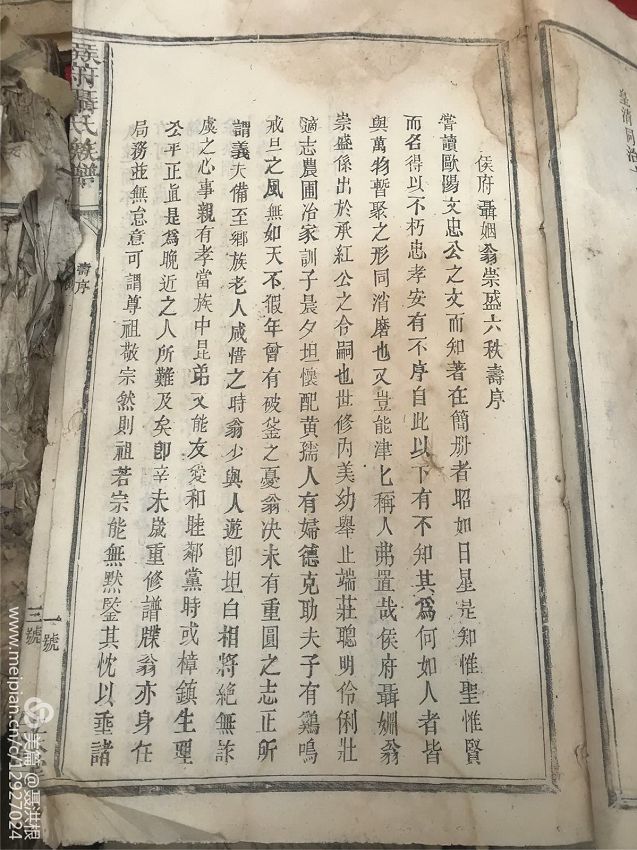 皇清同治
侯府聶姻翁崇盛六秩壽序
嘗讀歐陽文忠公之文而知著在簡册者昭如日星是知惟聖惟賢
而名得以不朽忠孝安有不序自此以下有不知其爲何如人者皆
與萬物暫聚之形同消磨也又豈能津匕稱人弗置哉侯府聶姻翁
崇盛係出於承紅公之令嗣也世修內美幼舉止端莊聰明伶俐壯
適志農圃治家訓子晨夕坦懷配黄孺人有婦德克助夫子有鷄鳴
戒旦之風無如天不假年曾有破釜之憂翁决未有重圓之志正所
謂義夫備至鄉族老人咸惜之時翁少與人遊卽坦白相將絕無詐
虞之心事親有孝當族中昆弟又能友愛和睦鄰黨時或樟鎮生理
公平正直是爲晚近之人所難及矣卽辛未歲重修譜牒翁亦身任
局務並無怠意可謂尊祖敬宗然則祖若宗能無默鑒其忱以垂諸
侯府聶氏族譜
壽序
一號
三號
www.meipian.cn/c/12927024
美篇@聂洪根